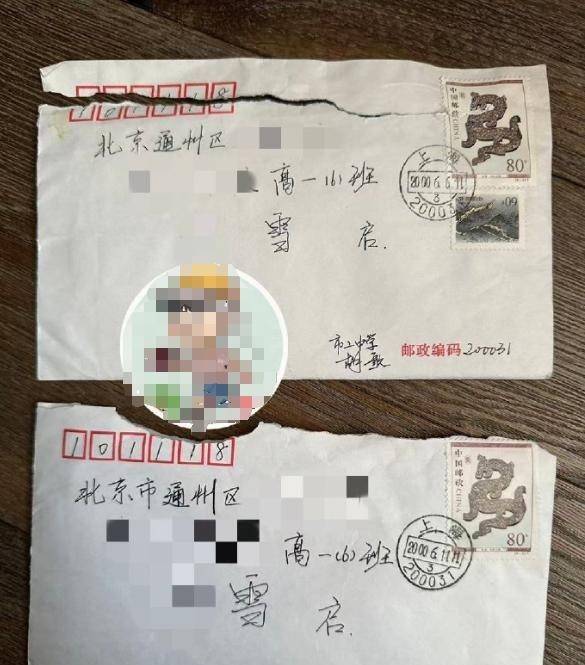 101118
中国邮政
CHINA
80分
北京通州区
上海
2000.6.6.11
3
200031
高一(6)班
60
雪 启.
市三中学
邮政编码 200031
101118
中国邮政
CHINA
80分
北京市通州区
上海
2000.6.11.11
3
200031
高一(6)班
雪 启.